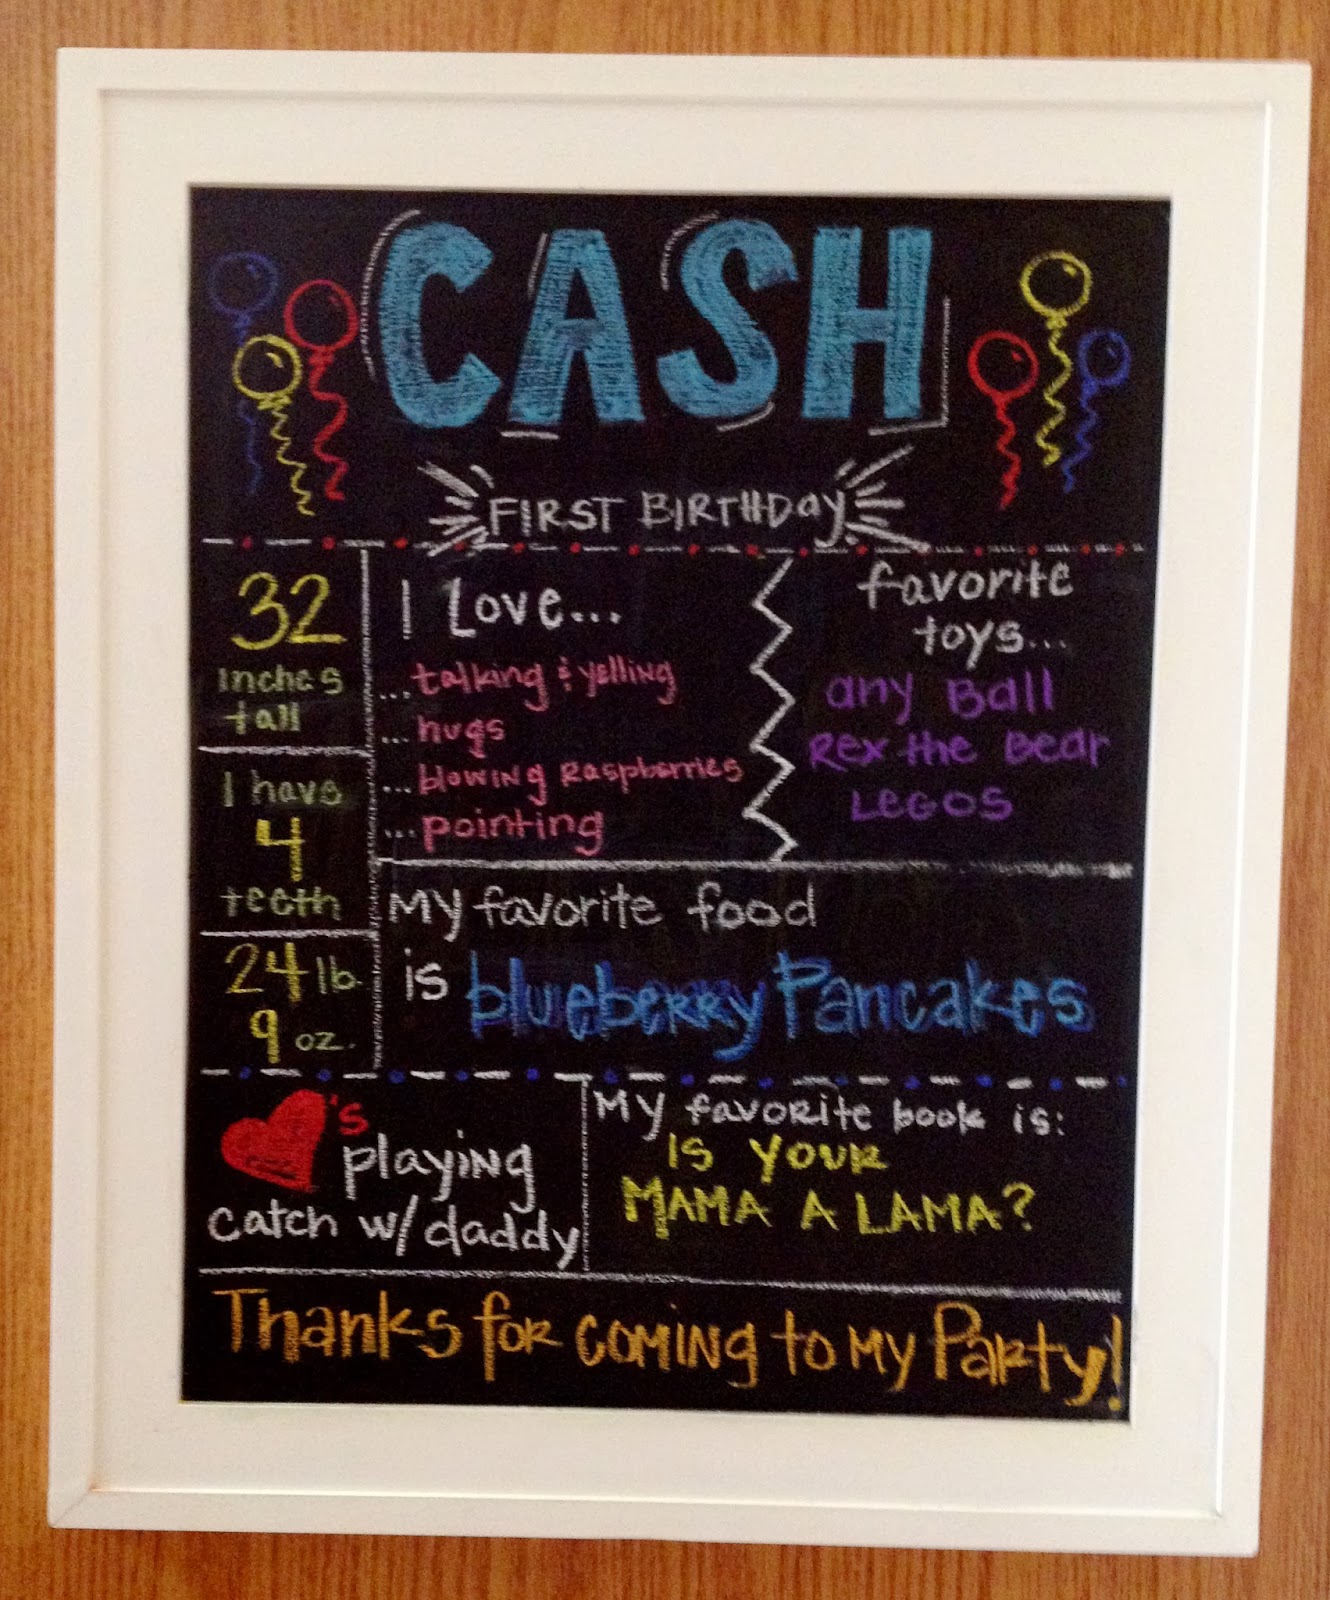 CASH
FIRST BIRTHDAY
32
inches
tall
I have
4
teeth
24 lb.
9 oz.
I Love...
...talking & yelling
...hugs
...blowing Raspberries
...pointing
favorite
toys...
any Ball
Rex the Bear
LEGOS
My favorite food
is blueberry Pancakes
's playing
catch w/ daddy
My favorite book is:
IS YOUR
MAMA A LAMA?
Thanks for coming to my Party!